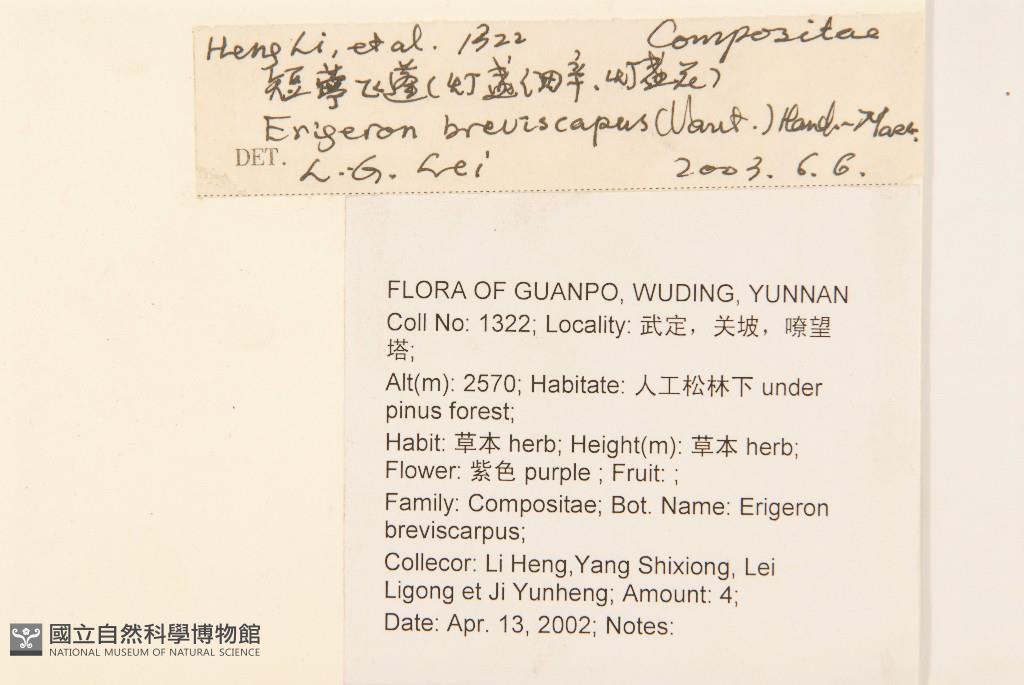 Heng Li, et al. 1322 Compositae
短葶飞蓬(灯盏细辛、灯盏花)
Erigeron breviscapus (Vant.) Hand.-Mazz.
DET. L.G. Lei 2003. 6. 6.
FLORA OF GUANPO, WUDING, YUNNAN
Coll No: 1322; Locality: 武定，关坡，嘹望
塔;
Alt(m): 2570; Habitate: 人工松林下 under
pinus forest;
Habit: 草本 herb; Height(m): 草本 herb;
Flower: 紫色 purple ; Fruit: ;
Family: Compositae; Bot. Name: Erigeron
breviscarpus;
Collecor: Li Heng,Yang Shixiong, Lei
Ligong et Ji Yunheng; Amount: 4;
Date: Apr. 13, 2002; Notes:
國立自然科學博物館
NATIONAL MUSEUM OF NATURAL SCIENCE